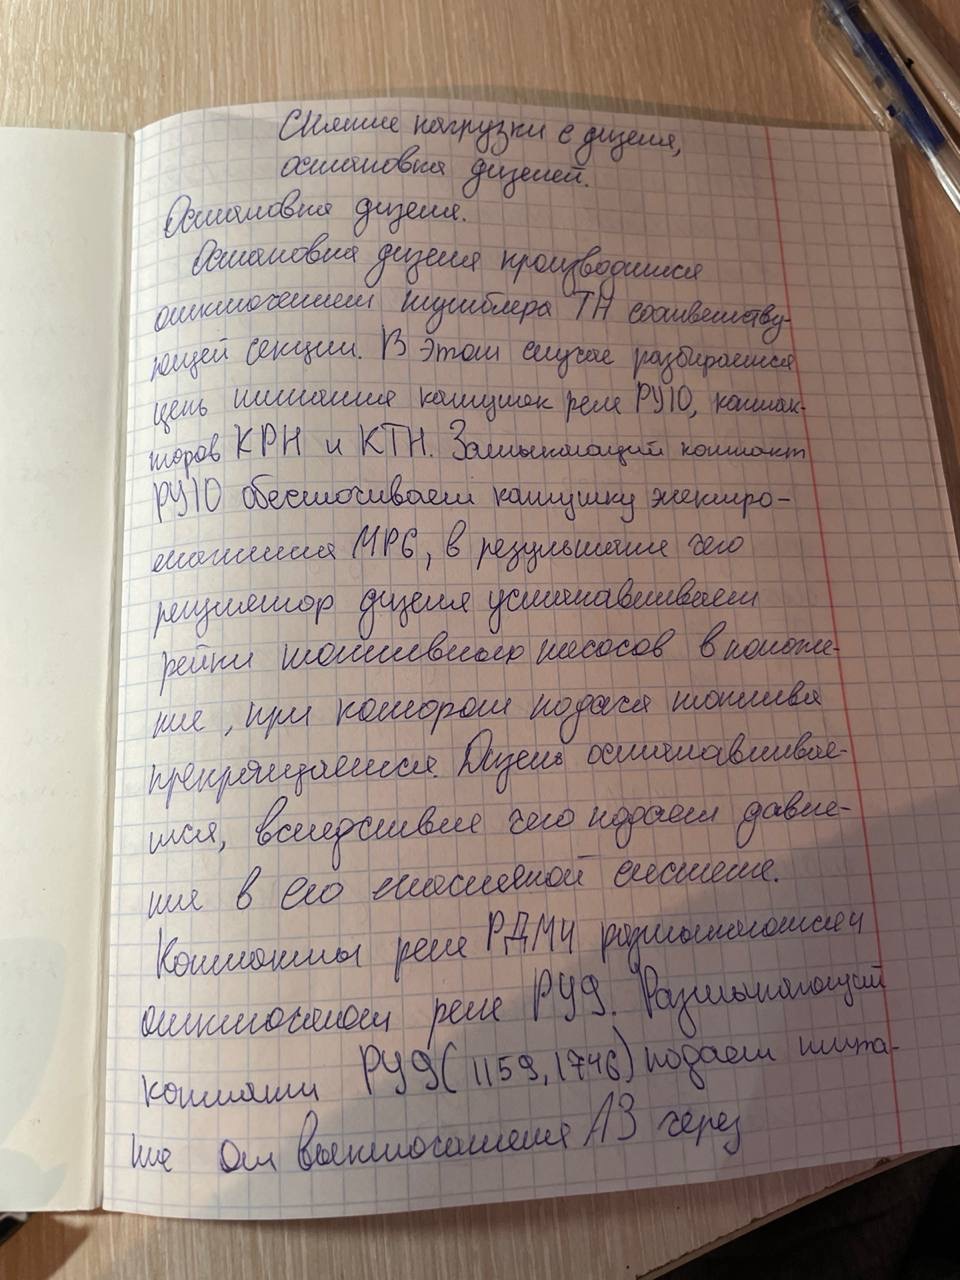 Снятие нагрузки с дизеля,
остановка дизелей.
Остановка дизеля.
Остановка дизеля производится
отключением тумблера ТН соответству-
ющей секции. В этом случае разбирается
цепь питания катушек реле РУ10, контак-
торов КРН и КТН. Замыкающий контакт
РУ10 обесточивает катушку электро-
магнита МР6, в результате чего
регулятор дизеля устанавливает
рейки топливного насосов в положе-
ние, при котором подача топлива
прекращается. Дизель останавливае-
тся, вследствие чего падает давле-
ние в его масляной системе.
Контакты реле РДМ4 размыкаются и
отключают реле РУ9. Размыкающий
контакт РУ9 (1159, 1746) подает пита-
ние от выключателя А3 через